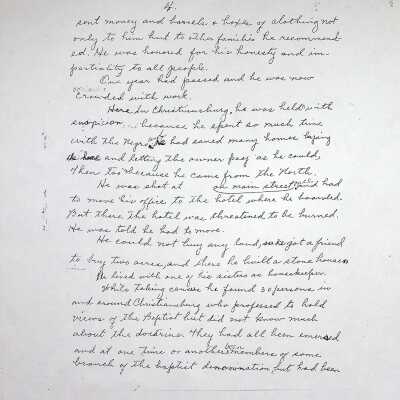 4.
sent money and barrels & boxes of clothing not
only to him but to other families he recommend-
ed. He was honored for his honesty and im-
partiality to all people.
One year had passed and he was now
crowded with work.
Here in Christiansburg, he was held with
suspicion... because he spent so much time
with the Negro. He had saved many homes buying
the home and letting the owner pay as he could,
Then too because he came from the North.
He was shot at on main street and had
to move his office to the hotel where he boarded.
But there the hotel was threatened to be burned.
He was told he had to move.
He could not buy any land, so he got a friend
to buy two acres, and there he built a stone house
He lived with one of his sisters as housekeeper.
While taking census he found 30 persons in
and around Christiansburg who professed to hold
views of the Baptist but did not know much
about the doctrine. They had all been immersed
and at one time or another been members of some
branch of the baptist denomination, but had been